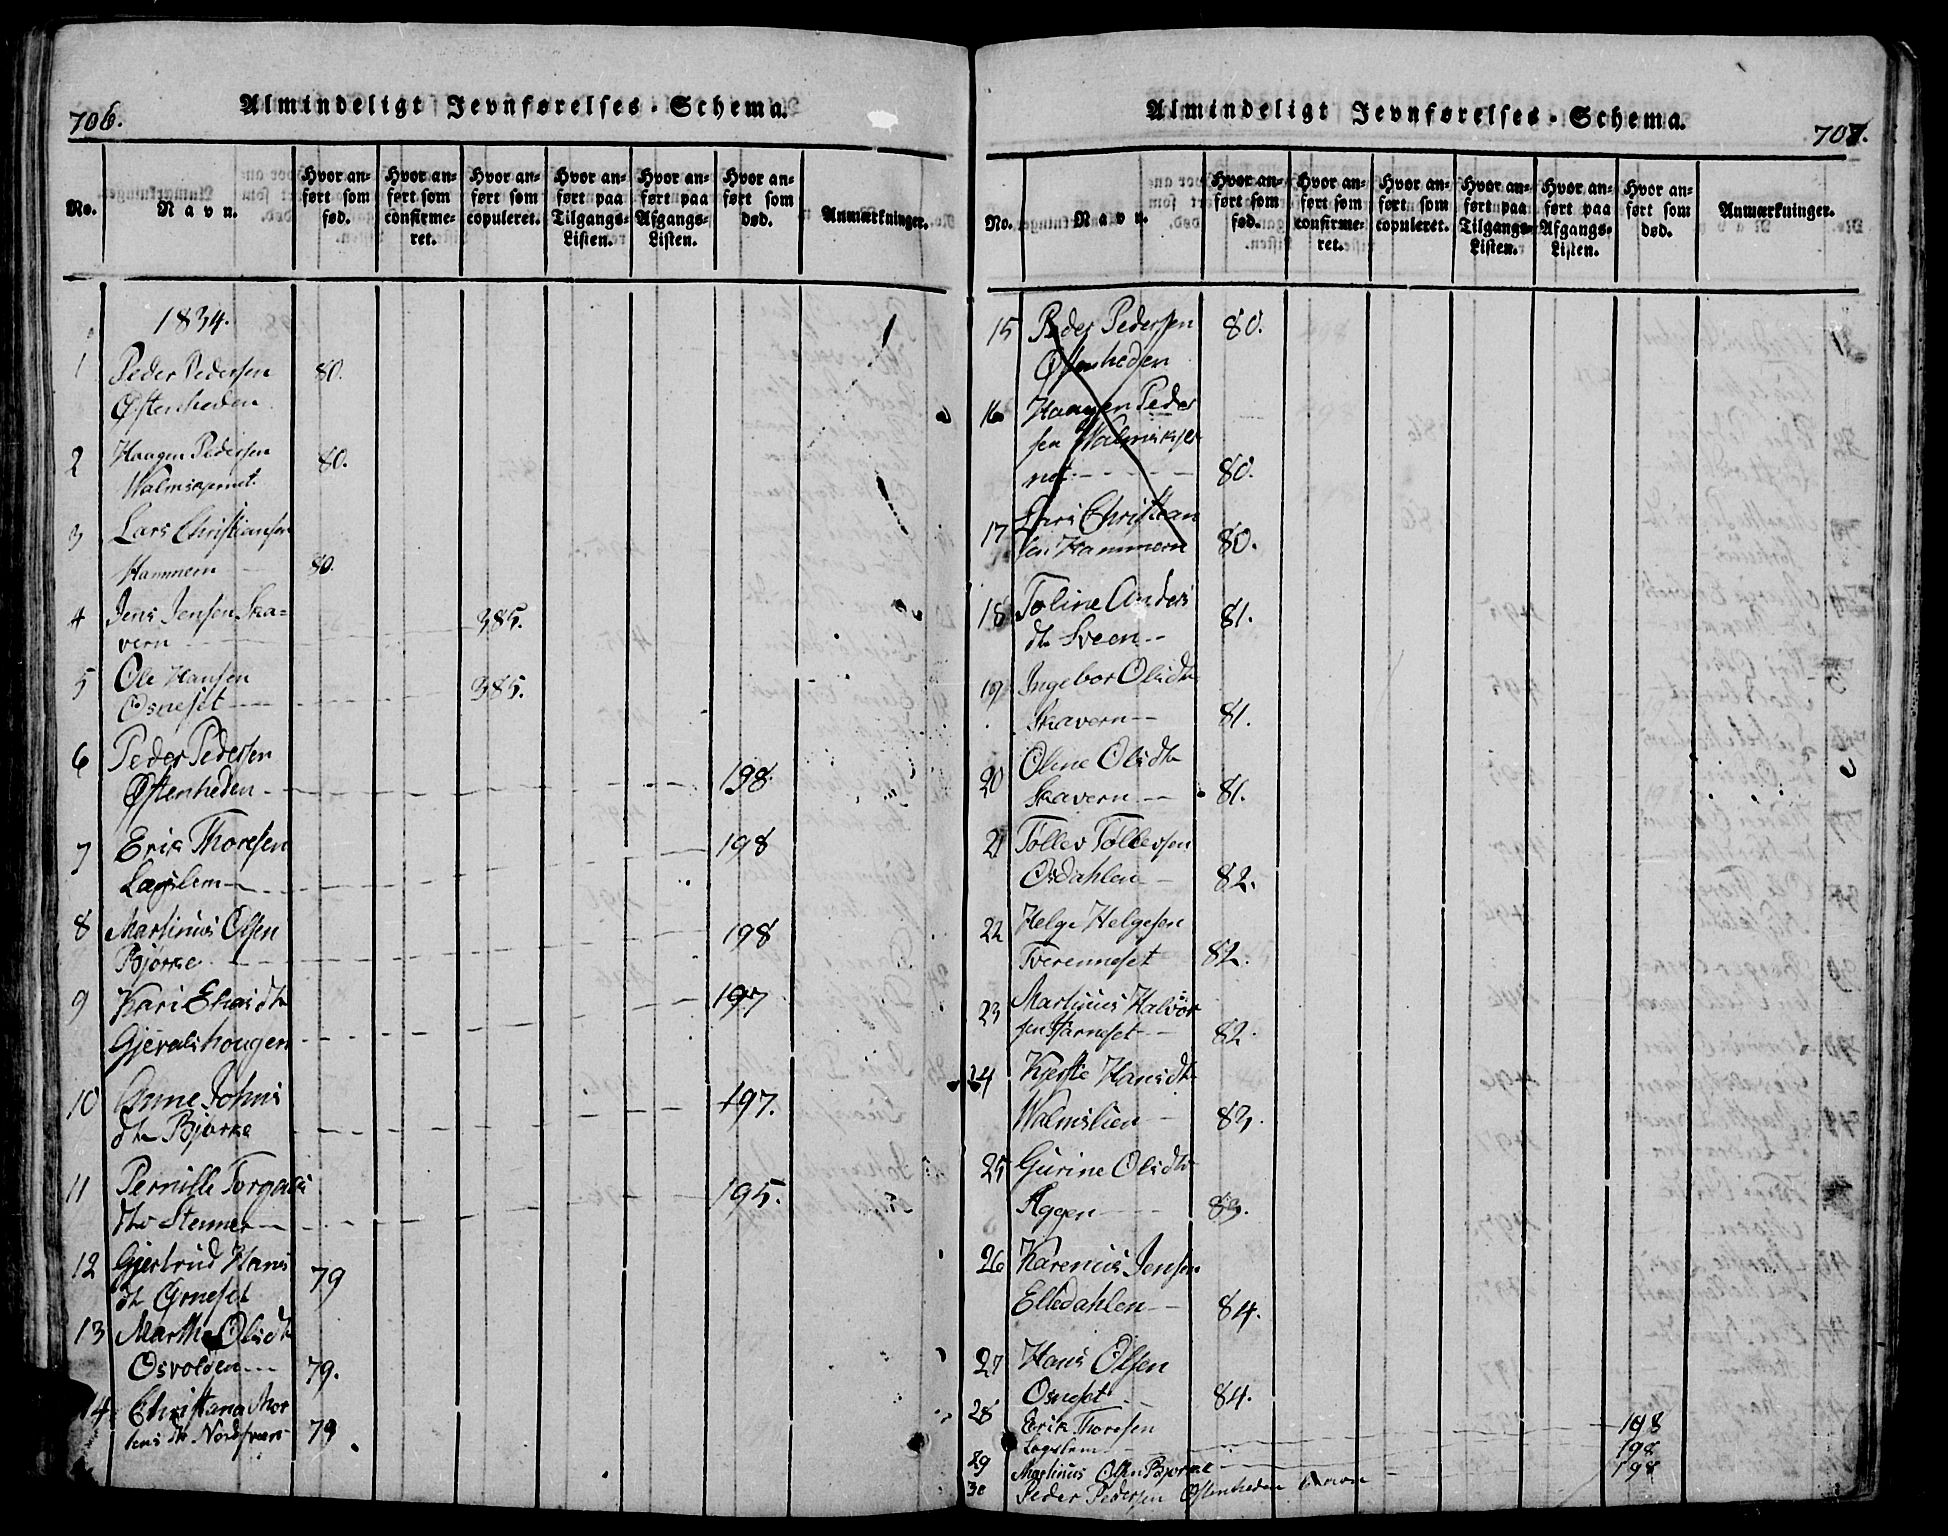 706.
Almindeligt Jevnførelses-Schema.
No.
Navn.
Hvor an-
ført som
fød.
Hvor an-
ført som
confirme-
ret.
Hvor an-
ført som
copuleret.
Hvor an-
ført paa
Tilgangs-
Listen.
Hvor an-
ført paa
Afgangs-
Listen.
Hvor an-
ført som
død.
Anmærkninger.
1834.
1 Peder Pedersen 80.
Østenheden
2 Haagen Pedersen 80.
3 Lars Christiansen
Hammern 80.
4 Jens Jensen Ska= 385.
vern
5 Ole Hansen 385.
Osneset
6 Peder Pedersen
Østenheden 198.
7 Erik Thoresen 198
Løgslem
8 Martinus Olsen 198
Bjørke
9 Kari Eliasdtr 197
Gjevalshougen
10 Anne Johns 197.
dtr Bjørke
11 Pernille Torgals 195.
dtr Stenner
12 Gjertrud Hans 79
dtr Ørneset
13 Marthe Olsdtr
Osvolden 79.
14 Christiana Mor
tens dtr 79
Almindeligt Jevnførelses-Schema.
707.
No.
Navn.
Hvor an-
ført som
fød.
Hvor an-
ført som
confirme-
ret.
Hvor an-
ført som
copuleret.
Hvor an-
ført paa
Tilgangs-
Listen.
Hvor an-
ført paa
Afgangs-
Listen.
Hvor an-
ført som
død.
Anmærkninger.
15 Peder Pedersen 80.
Østenheden
16 Haagen Peder
sen Walmskjer
net 80.
17 Lars Christian
sen Hammern 80.
18 Toline Anders 81.
dtr Sveen
19 Ingebor Olsdtr
Skavern 81.
20 Oline Olsdtr
Skavern 81.
21 Tollev Tollevsen
Osdahlen 82.
22 Helge Helgesen
Tverenneset 82.
23 Martinus Halvor
sen 82.
24 Kjerstie Hansdtr
Walmslien 83.
25 Gurine Olsdtr
Aggen 83.
26 Karenius Jensen
Elledahlen 84.
27 Hans Olsen
Osneset 84.
28 Erik Thoresen 198
Løgslem 198
29 Martinus Olsen Bjørke 198
30 Peder Pedersen Østenheden